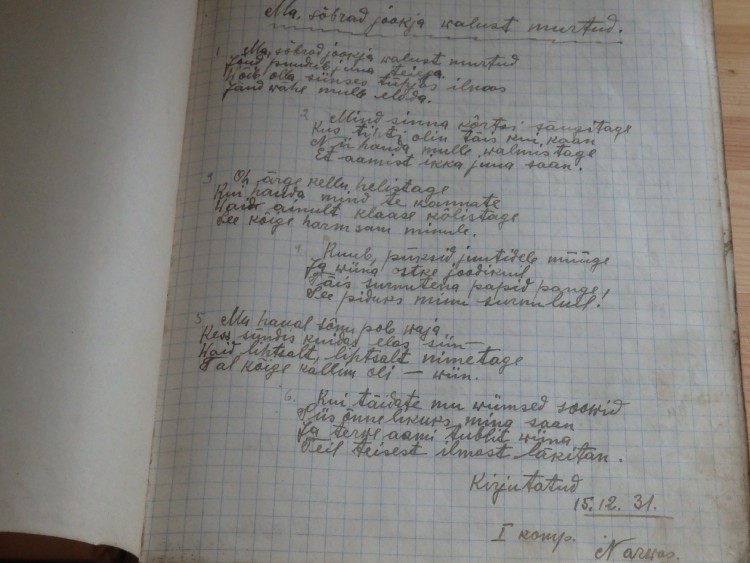 Ma, sõbrad jookja walust murtud.
1. Ma, sõbrad jookja walust murtud
juua teiega.
Võib olla siinses tühjas ilmas
Jäänd wähe mulle elada.
2. Mind sinna kõrtsi sängitage
Kus tihti olin täis kui kaan
Nii hauda mulle walmistage
Et aamist ikka juua saan.
3. Oh ärge kellu helistage
Kui hauda mind te kannate
Waid ainult klaase kõlistage
See kõige harmsam minule.
4. Kuub, püksid juutidele müüge
Ja wiina ostke joodikuil
Täis surmutena papid pange!
See piduks minu surmuluil!
5. Mu haual sõnu pole waja
Kes sündis kuidas elas siin —
Waid liptsalt, liptsalt nimetage
Tal kõige kallim oli — wiin.
6. Kui täidate mu wiimsed soowid
Siis õnnelikuks mina saan
Ja terwe aami tublit wiina
Teil teisest ilmast läkitan.
Kirjutatud
15.12.31.
I komp.
Narwas.